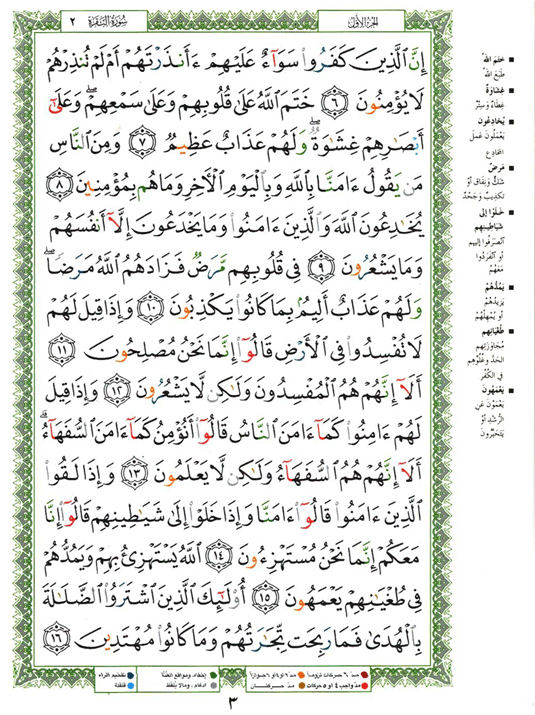 الجزء الأول
سُورَةُ البَقَرَةِ ٢
إِنَّ ٱلَّذِينَ كَفَرُوا۟ سَوَآءٌ عَلَيْهِمْ ءَأَنذَرْتَهُمْ أَمْ لَمْ تُنذِرْهُمْ
لَا يُؤْمِنُونَ ٦ خَتَمَ ٱللَّهُ عَلَىٰ قُلُوبِهِمْ وَعَلَىٰ سَمْعِهِمْ ۖ وَعَلَىٰٓ
أَبْصَـٰرِهِمْ غِشَـٰوَةٌ ۖ وَلَهُمْ عَذَابٌ عَظِيمٌ ٧ وَمِنَ ٱلنَّاسِ
مَن يَقُولُ ءَامَنَّا بِٱللَّهِ وَبِٱلْيَوْمِ ٱلْـَٔاخِرِ وَمَا هُم بِمُؤْمِنِينَ ٨
يُخَـٰدِعُونَ ٱللَّهَ وَٱلَّذِينَ ءَامَنُوا۟ وَمَا يَخْدَعُونَ إِلَّآ أَنفُسَهُمْ
وَمَا يَشْعُرُونَ ٩ فِى قُلُوبِهِم مَّرَضٌ فَزَادَهُمُ ٱللَّهُ مَرَضًا ۖ
وَلَهُمْ عَذَابٌ أَلِيمٌۢ بِمَا كَانُوا۟ يَكْذِبُونَ ١٠ وَإِذَا قِيلَ لَهُمْ
لَا تُفْسِدُوا۟ فِى ٱلْأَرْضِ قَالُوٓا۟ إِنَّمَا نَحْنُ مُصْلِحُونَ ١١
أَلَآ إِنَّهُمْ هُمُ ٱلْمُفْسِدُونَ وَلَـٰكِن لَّا يَشْعُرُونَ ١٢ وَإِذَا قِيلَ
لَهُمْ ءَامِنُوا۟ كَمَآ ءَامَنَ ٱلنَّاسُ قَالُوٓا۟ أَنُؤْمِنُ كَمَآ ءَامَنَ ٱلسُّفَهَآءُ ۗ
أَلَآ إِنَّهُمْ هُمُ ٱلسُّفَهَآءُ وَلَـٰكِن لَّا يَعْلَمُونَ ١٣ وَإِذَا لَقُوا۟
ٱلَّذِينَ ءَامَنُوا۟ قَالُوٓا۟ ءَامَنَّا وَإِذَا خَلَوْا۟ إِلَىٰ شَيَـٰطِينِهِمْ قَالُوٓا۟ إِنَّا
مَعَكُمْ إِنَّمَا نَحْنُ مُسْتَهْزِءُونَ ١٤ ٱللَّهُ يَسْتَهْزِئُ بِهِمْ وَيَمُدُّهُمْ
فِى طُغْيَـٰنِهِمْ يَعْمَهُونَ ١٥ أُو۟لَـٰٓئِكَ ٱلَّذِينَ ٱشْتَرَوُا۟ ٱلضَّلَـٰلَةَ
بِٱلْهُدَىٰ فَمَا رَبِحَت تِّجَـٰرَتُهُمْ وَمَا كَانُوا۟ مُهْتَدِينَ ١٦
■ ختم الله
طَبَعَ اللهُ
■ غِشَاوَةٌ
غِطَاءٌ وَسِتْرٌ
■ يُخادِعُون
يَعْمَلُونَ عَمَلَ
المخَادِعِ
■ مَرَضٌ
شَكٌّ وَنِفَاقٌ أَوْ
تَكْذِيبٌ وَجَحْدٌ
■ خَلَوْا إلى
شَيَاطِينِهِم
انْصَرَفُوا إليهِمْ
أَوِ انْفَرَدُوا
مَعَهُمْ
■ يَمُدُّهُمْ
يَزِيدُهُمْ
أَوْ يُمْهِلُهُمْ
■ طُغْيَانِهِم
مُجَاوَزَتِهِم
الحَدَّ وَغُلُوِّهِم
فِي الكُفْرِ
■ يَعْمَهُونَ
يَعْمَوْنَ عَنِ
الرُّشْدِ أَوْ
يَتَحَيَّرُونَ
مدّ ٦ حركات لزوماً مدّ ٢ أو ٤ أو ٦ جوازاً إخفاء، ومواقع الغُنَّة تفخيم الراء
مدّ واجب ٤ أو ٥ حركات مدّ حركتان ادغام، ومالا يُلفَظ قلقلة
٣